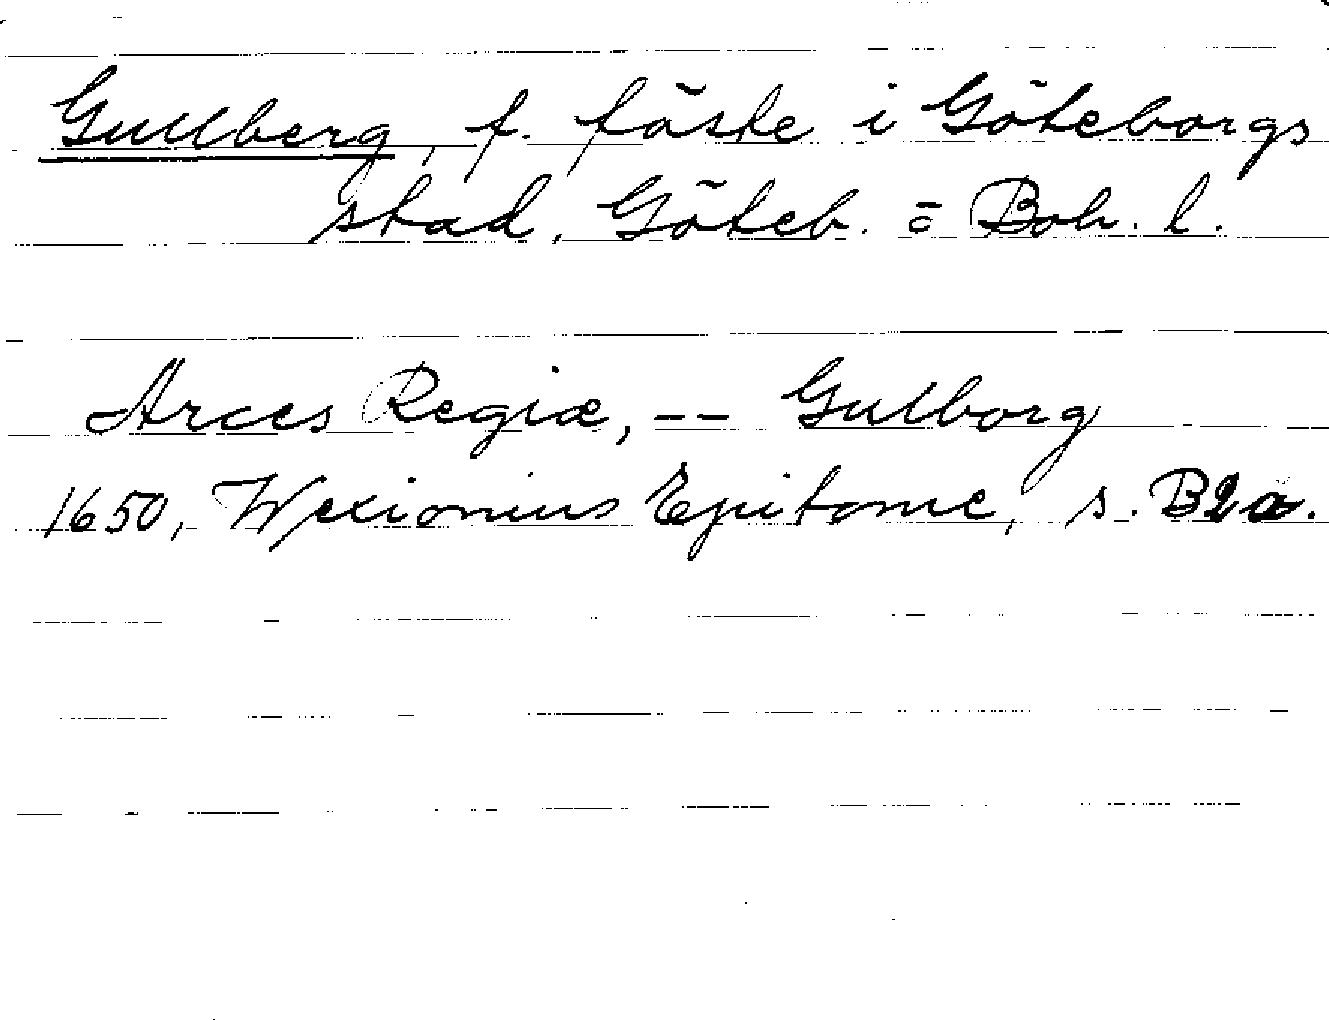 Gullberg, f. fäste i Göteborgs
stad, Göteb. o Boh. l.
Arces Regiæ, -- Gulborg
1650, Wexionius Epitome, s. B2a.